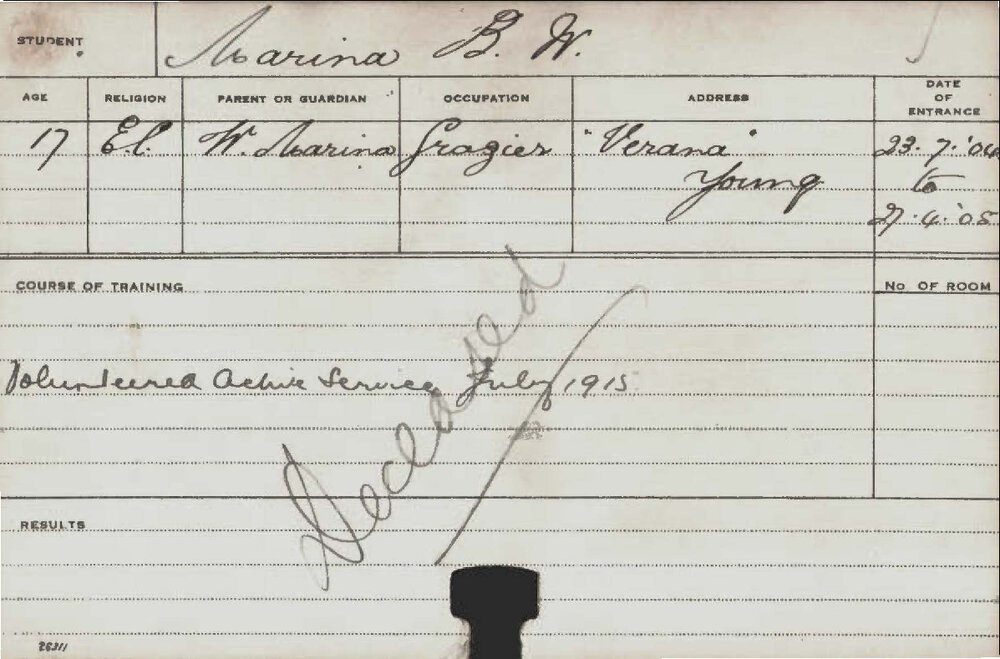 STUDENT Marina B. W.
AGE RELIGION PARENT OR GUARDIAN OCCUPATION ADDRESS DATE OF ENTRANCE
17 E.C. W. Marina Grazier "Verana" 23.7.'04
Young to
27.4.'05
COURSE OF TRAINING No OF ROOM
Volunteered Active Service July 1915
Deceased
RESULTS
26311